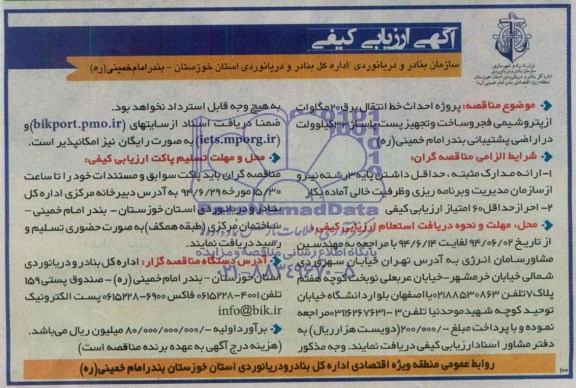 آگهی ارزیابی کیفی
سازمان بنادر و دریانوردی / اداره کل بنادر و دریانوردی استان خوزستان - بندر امام خمینی (ره)
وزارت راه و شهرسازی
سازمان بنادر و دریانوردی
اداره کل بنادر و دریانوردی استان خوزستان
منطقه ویژه اقتصادی بندر امام خمینی (ره)
موضوع مناقصه: پروژه احداث خط انتقال برق ۲۰ مگاوات
از پتروشیمی فجر و ساخت و تجهیز پست پاساژ ۳۳ کیلوولت
در اراضی پشتیبانی بندر امام خمینی (ره)
شرایط الزامی مناقصه گران:
۱- ارائه مدارک مثبته، حداقل داشتن پایه ۳ رشته نیرو
از سازمان مدیریت و برنامه ریزی وظرفیت خالی آماده بکار
۲- احراز حداقل ۶۰ امتیاز ارزیابی کیفی
محل، مهلت و نحوه دریافت استعلام ارزیابی کیفی:
از تاریخ ۹۴/۰۶/۰۲ لغایت ۹۴/۶/۱۴ با مراجعه به مهندسین
مشاور سامان انرژی به آدرس تهران خیابان سهروردی
شمالی خیابان خرمشهر - خیابان عربعلی نوبخت کوچه هفتم
پلاک ۷ تلفن ۰۲۱۸۸۵۳۰۸۶۳ یا اصفهان بلوار دانشگاه خیابان
توحید کوچه شهید موحدنیا تلفن ۳-۰۳۱۱۶۲۶۷۶۳۱ مراجعه
نموده و با پرداخت مبلغ -/۲۰۰/۰۰۰ (دویست هزار ریال) به
دفتر مشاور اسناد ارزیابی کیفی دریافت نمایند. وجه مذکور
به هیچ وجه قابل استرداد نخواهد بود.
ضمنا دریافت اسناد از سایتهای (bikport.pmo.ir) و
(iets.mporg.ir) به صورت رایگان نیز امکانپذیر است.
محل و مهلت تسلیم پاکت ارزیابی کیفی:
مناقصه گران باید پاکت سوابق و مستندات خود را تا ساعت
۱۵/۳۰ مورخه ۹۴/۶/۲۹ به آدرس دبیرخانه مرکزی اداره کل
بنادر و دریانوردی استان خوزستان - بندر امام خمینی -
ساختمان مرکزی (طبقه همکف) به صورت حضوری تسلیم و
رسید دریافت نمایند.
آدرس دستگاه مناقصه گزار: اداره کل بنادر و دریانوردی
استان خوزستان - بندر امام خمینی (ره) - صندوق پستی ۱۵۹
تلفن ۴۰۰۱-۰۶۱۵۲۲۸ فاکس ۶۹۰۰-۰۶۱۵۲۲۸ پست الکترونیک
info@bik.ir
برآورد اولیه -/۸۰/۰۰۰/۰۰۰/۰۰۰ میلیون ریال می باشد.
(هزینه درج آگهی به عهده برنده مناقصه است)
روابط عمومی منطقه ویژه اقتصادی اداره کل بنادر و دریانوردی استان خوزستان بندر امام خمینی (ره)
ParsNamadData
پایگاه اطلاع رسانی مناقصه و مزایده
۰۲۱-۸۸۳۴۹۶۷۰-۵